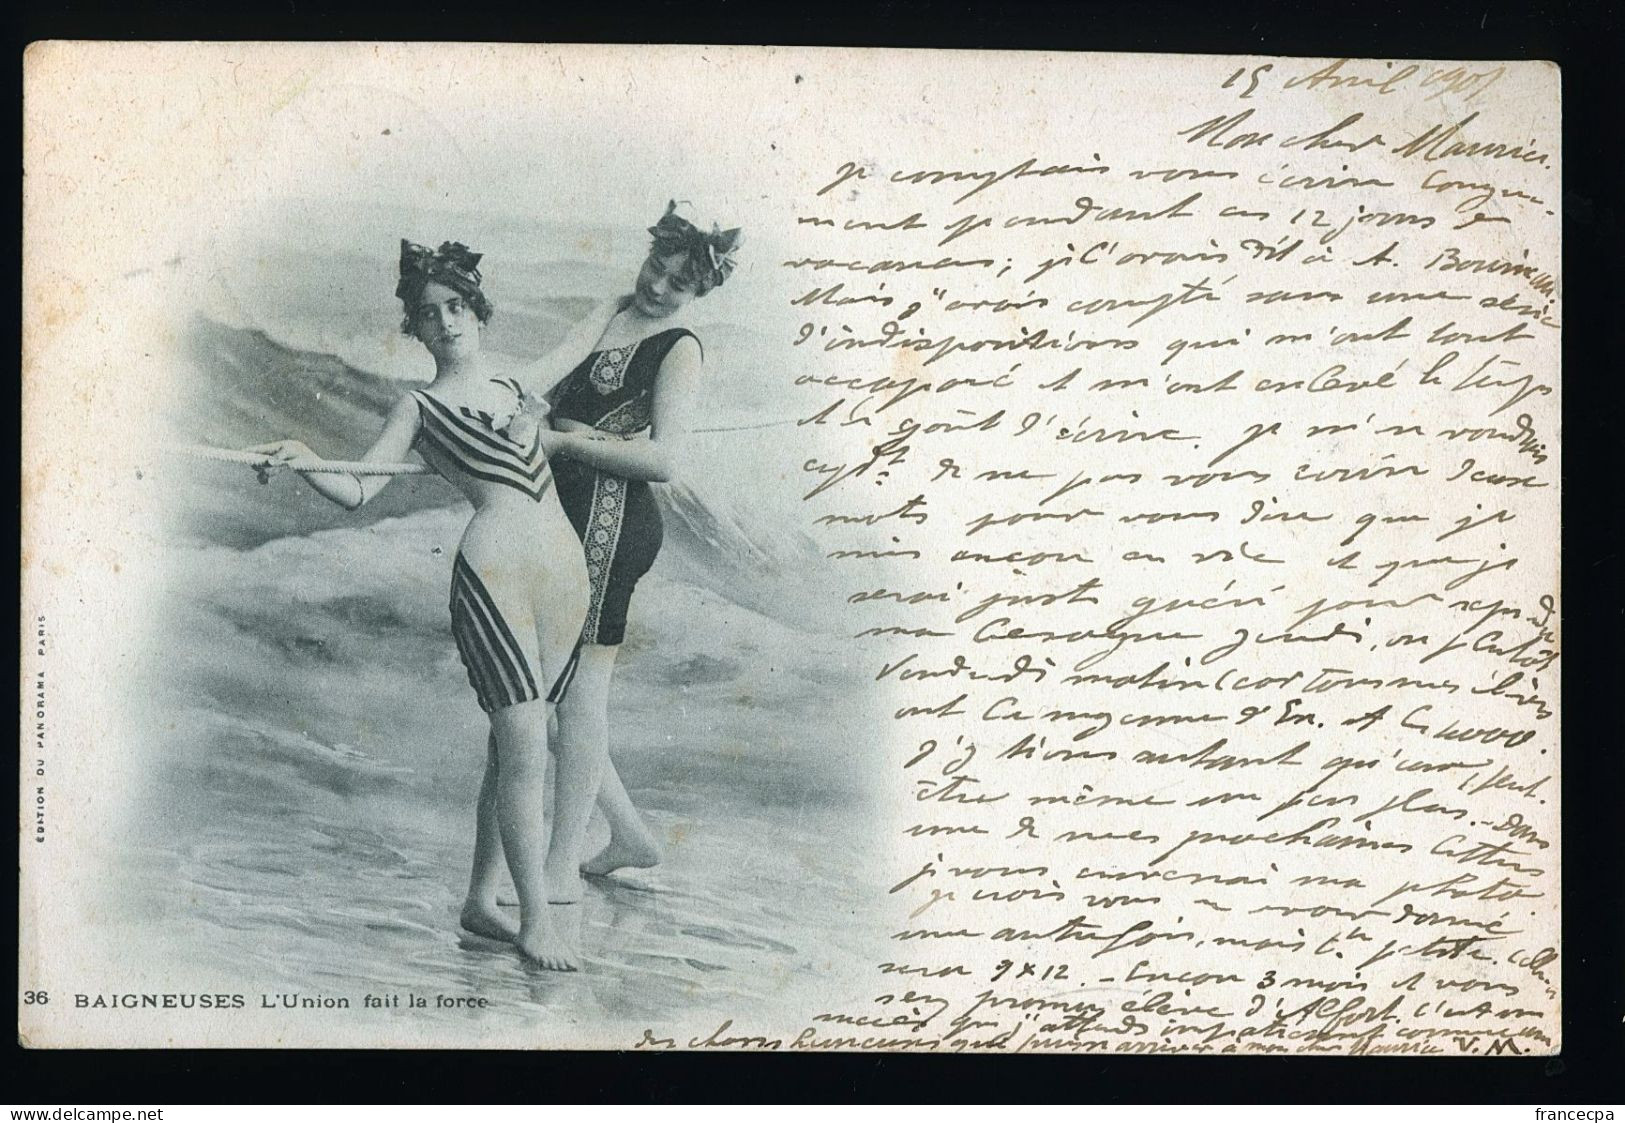 15 Avril 1901
Mon cher Maurice.
je comptais vous écrire longue-
ment pendant ces 12 jours de
vacances; je l'avais dit à A.
Mais j'avais compté sans une série
d'indispositions qui m'ont tout
accaparé et m'ont enlevé le temps
et le goût d'écrire. je m'en voudrais
cept de ne pas vous écrire deux
mots pour vous dire que je
suis encore en vie et que je
serai juste guéri pour reprendre
ma besogne jeudi, ou plutôt
Vendredi matin (car tous mes élèves
ont la moyenne d'Ex. A la
j'y tiens autant qu'eux, peut-
être même un peu plus. - dans
une de mes prochaines lettres
je vous enverrai ma photo.
je crois vous en avoir donné
une autrefois, mais trn petite. celle-ci
sera 9 x 12. - Encore 3 mois et vous
serez premier élève d'Alfort. c'est un
succès que j'attends impatiemment comme un
des chers honneurs que puisse arriver à mon cher Maurice V. M.
ÉDITION DU PANORAMA PARIS
36 BAIGNEUSES L'Union fait la force
francecpa